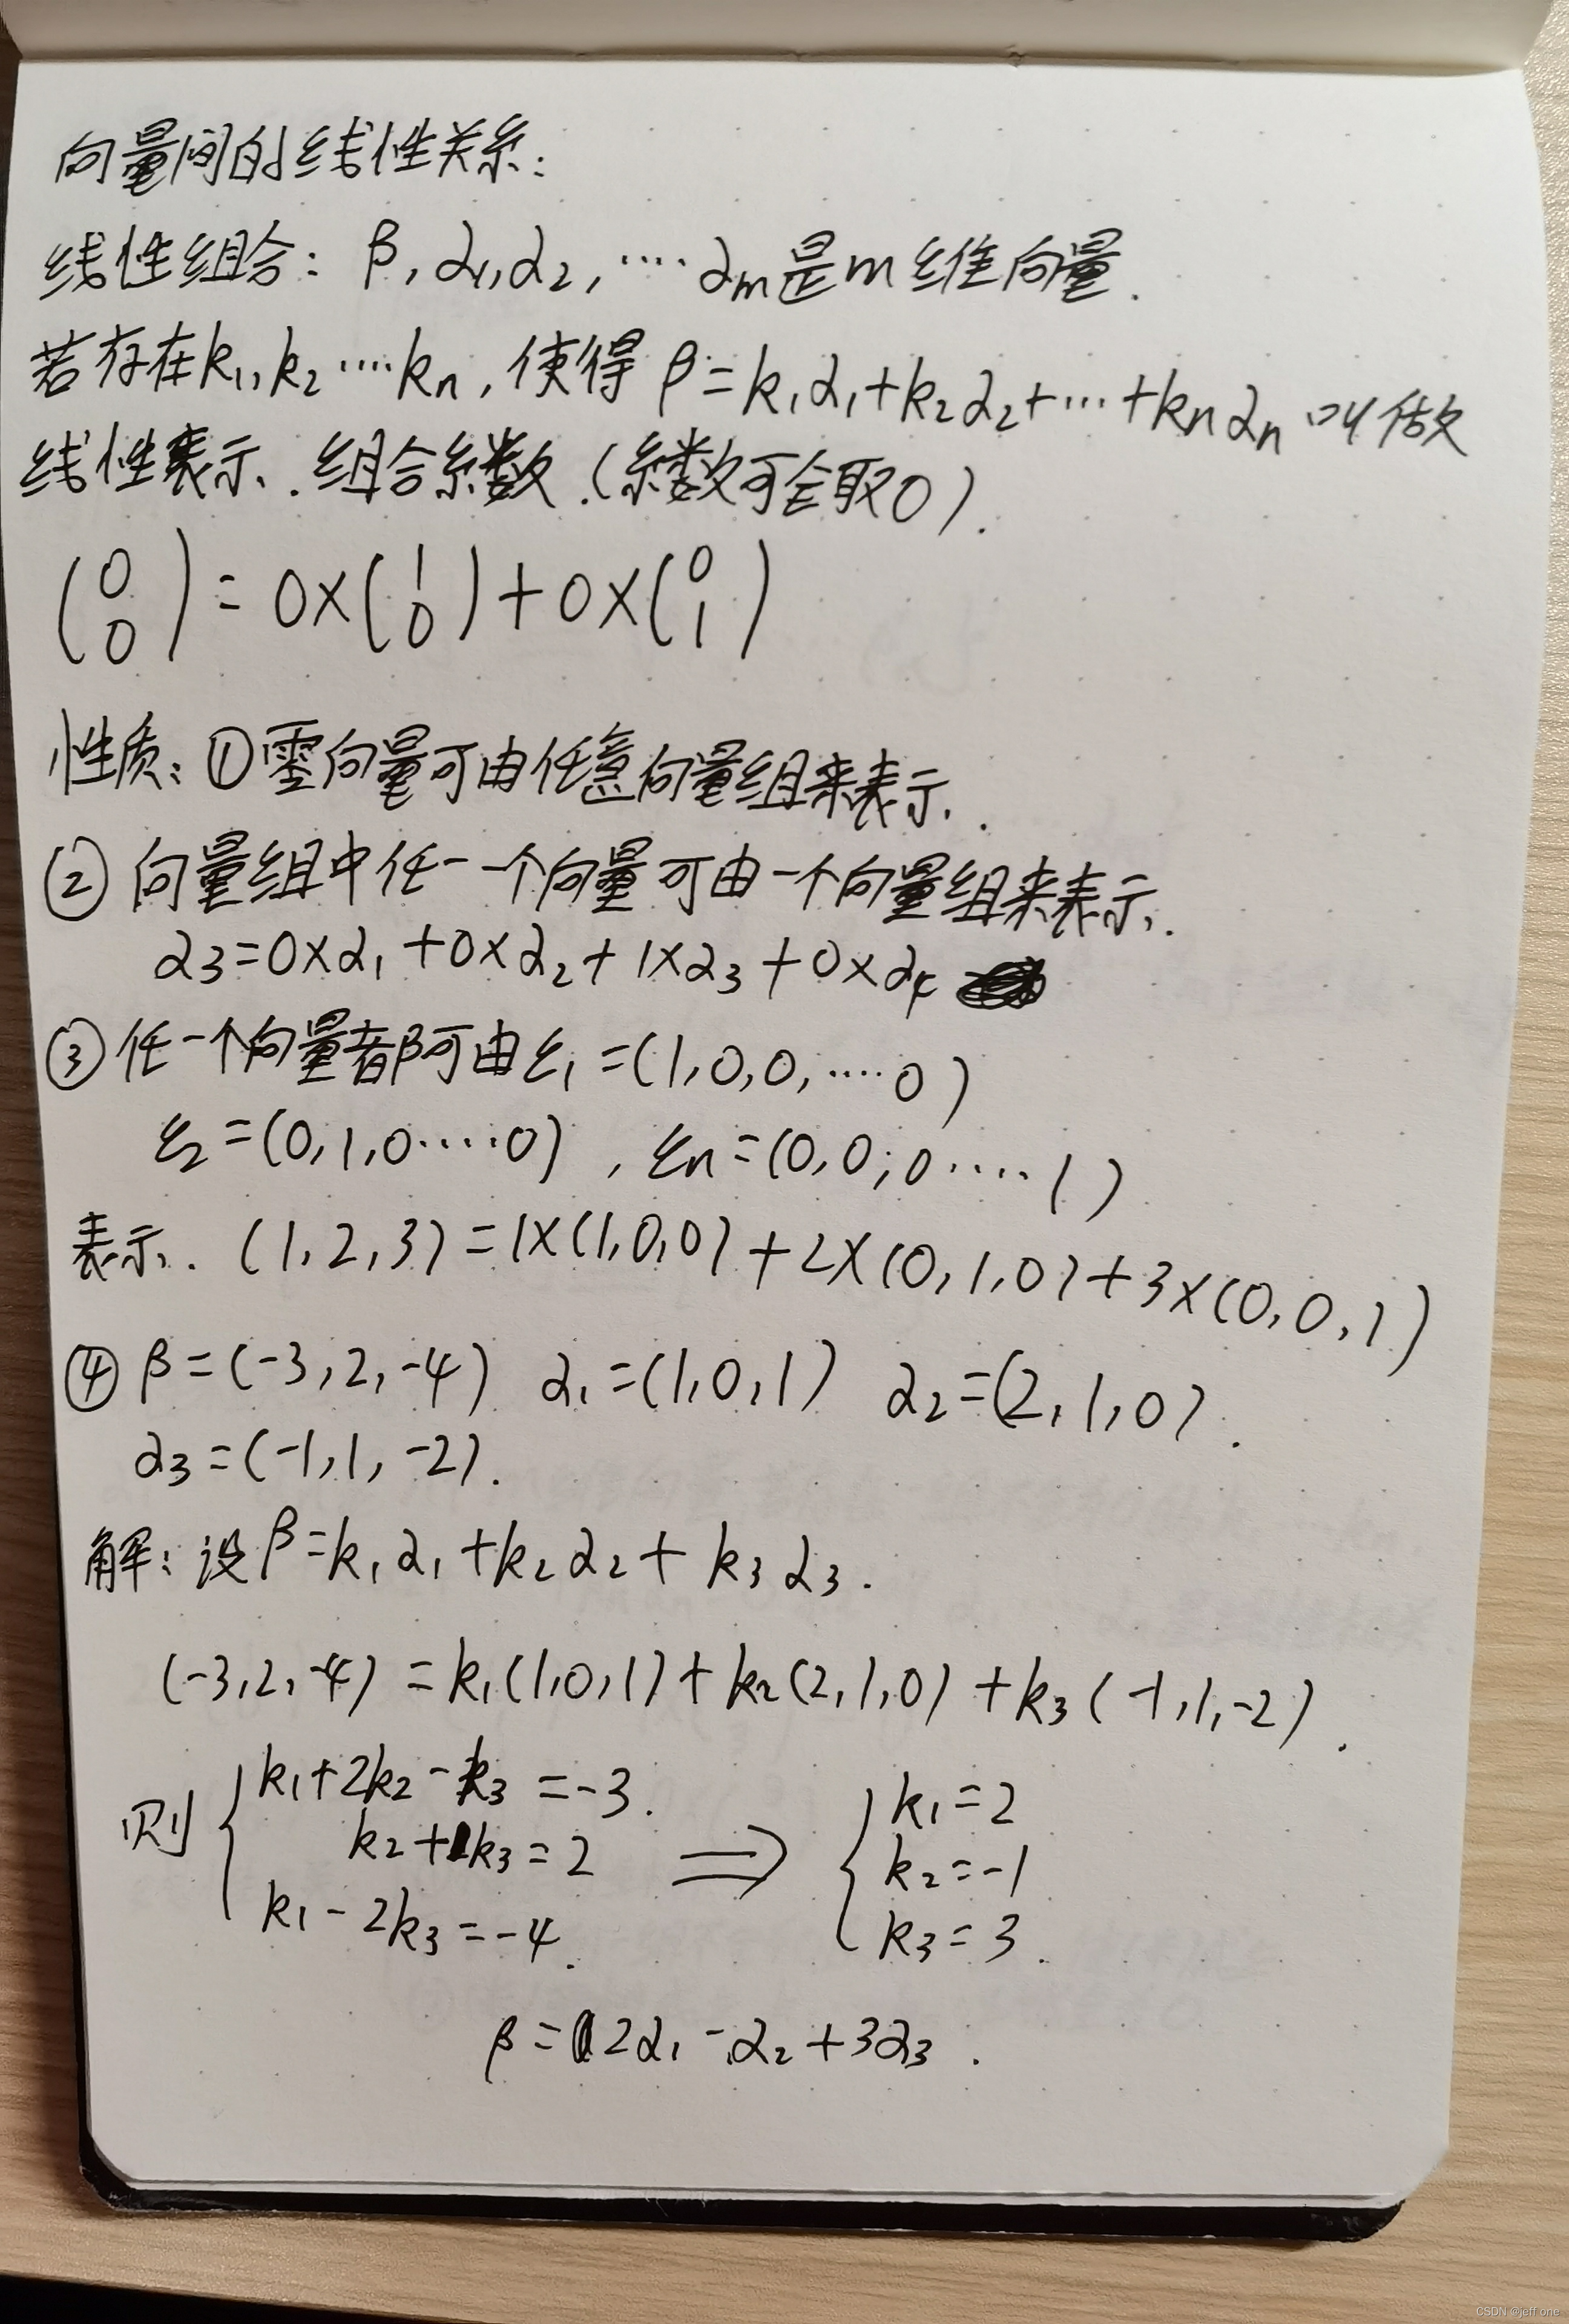 向量间的线性关系:
线性组合: β, α1, α2, ···· αm是m维向量.
若存在k1, k2 ···· kn, 使得 β=k1α1+k2α2+···+knαn 叫做
线性表示. 组合系数.(系数可全取0).
(0 0) = 0×(1 0)+0×(0 1)
性质: ①零向量可由任意向量组来表示.
② 向量组中任一个向量可由一个向量组来表示.
α3=0×α1+0×α2+1×α3+0×α4
③ 任一个向量都可由ε1=(1,0,0,····0)
ε2=(0,1,0····0) , εn=(0,0,0····1)
表示. (1,2,3)=1×(1,0,0)+2×(0,1,0)+3×(0,0,1)
④ β=(-3,2,-4) α1=(1,0,1) α2=(2,1,0).
α3=(-1,1,-2).
解: 设β=k1α1+k2α2+k3α3.
(-3,2,-4)=k1(1,0,1)+k2(2,1,0)+k3(-1,1,-2).
则 { k1+2k2-k3=-3.
k2+k3=2 ⟹ { k1=2
k1-2k3=-4. k2=-1
k3=3.
β=2α1-α2+3α3.
CSDN @jeff one